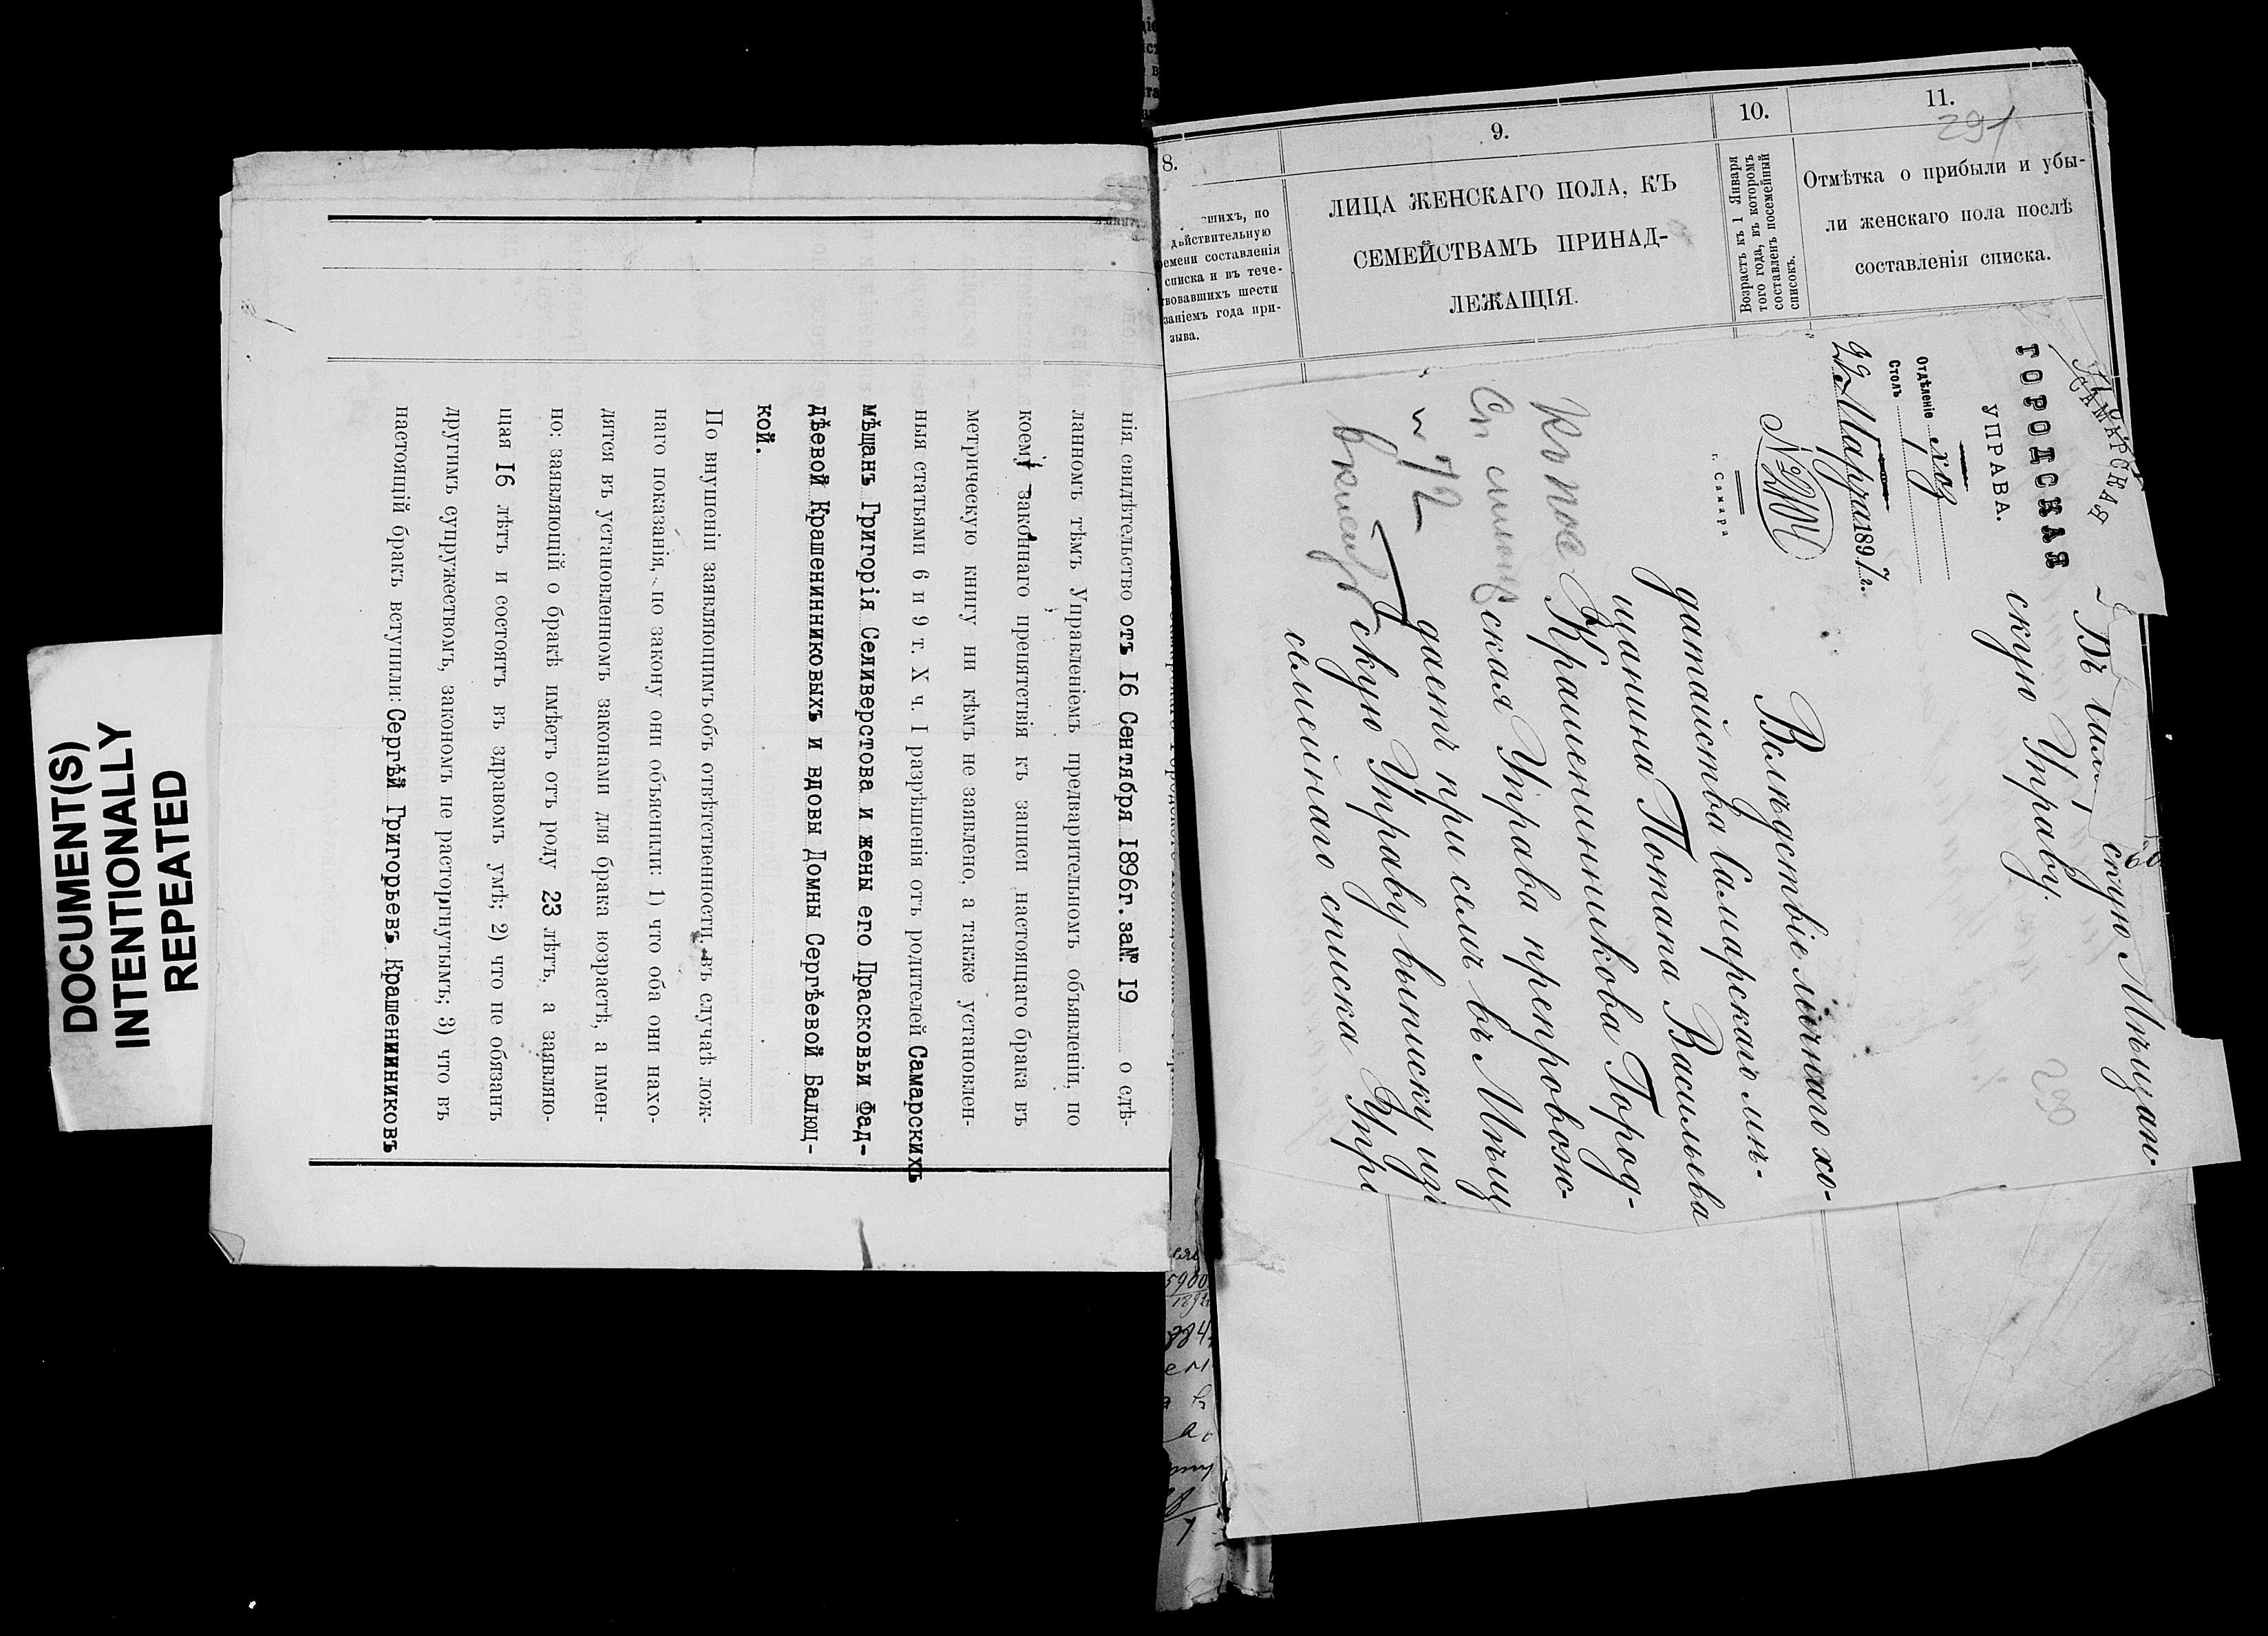 DOCUMENT(S)
INTENTIONALLY
REPEATED
нія свидѣтельство отъ 16 Сентября 1896г. за № 19 о сдѣ-
ланномъ тѣмъ Управленіемъ предварительномъ объявленіи, по
коему законнаго препятствія къ записи настоящаго брака въ
метрическую книгу ни кѣмъ не заявлено, а также установлен-
ныя статьями 6 и 9 т. X ч. I разрѣшенія отъ родителей Самарскихъ
мѣщанъ Григорія Селиверстова и жены его Прасковьи Фад-
дѣевой Крашенинниковыхъ и вдовы Домны Сергѣевой Балюц-
кой.
По внушеніи заявляющимъ объ отвѣтственности, въ случаѣ лож-
наго показанія, по закону они объяснили: 1) что оба они нахо-
дятся въ установленномъ законами для брака возрастѣ, а имен-
но: заявляющій о бракѣ имѣетъ отъ роду 23 лѣтъ, а заявляю-
щая 16 лѣтъ и состоятъ въ здравомъ умѣ; 2) что не обязанъ
другимъ супружествомъ, закономъ не расторгнутымъ; 3) что въ
настоящій бракъ вступили: Сергѣй Григорьевъ Крашенинниковъ
8.
9.
10.
11.
291
шихъ, по
дѣйствительную
ремени составленія
списка и въ тече-
твовавшихъ шести
заніемъ года при-
зыва.
ЛИЦА ЖЕНСКАГО ПОЛА, КЪ
СЕМЕЙСТВАМЪ ПРИНАД-
ЛЕЖАЩІЯ.
Возрастъ къ 1 Января
того года, въ которомъ
составленъ посемейный
списокъ.
Отмѣтка о прибыли и убы-
ли женскаго пола послѣ
составленія списка.
САМАРСКАЯ
ГОРОДСКАЯ
УПРАВА.
Отдѣленіе хоз
Столъ 1
22 Марта 1897 г.
№ 2204
г. Самара
Въ скую Мѣщан-
скую Управу.
Вслѣдствіе личнаго хо-
датайства Самарскаго мѣ-
щанина Потапа Васильева
Крашенинникова Город-
ская Управа препровож-
даетъ при семъ въ Мѣщ
скую Управу выписку из
семейнаго списка
№ 72
5900
1892
884